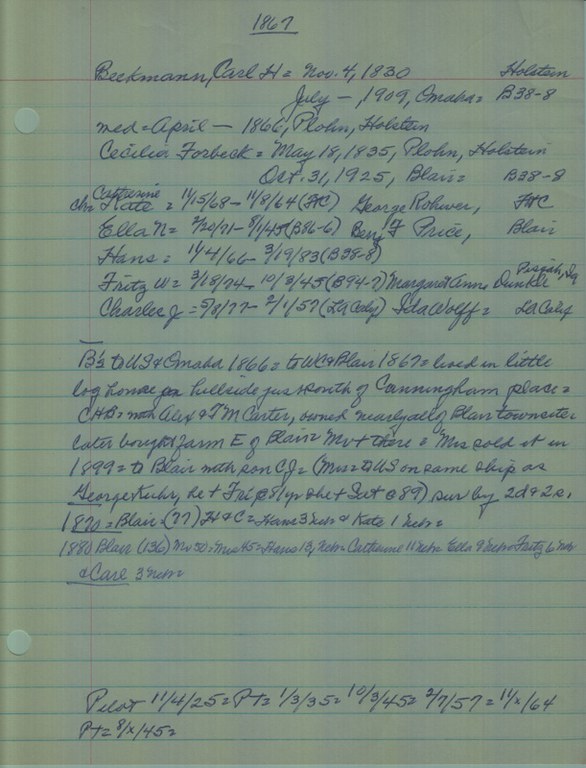 1867
Beckmann, Carl H = Nov. 4, 1830 Holstein
July —, 1909, Omaha = B38-8
med = April — 1866, Plohn, Holstein
Cecilia Forbeck = May 18, 1835, Plohn, Holstein
Oct. 31, 1925, Blair = B38-8
Catherine
chn Kate = 11/15/68 - 11/8/64 (FtC) George Rohwer, FtC
Ella N = 2/20/71 - 8/1/45 (B86-6) Benj F Price, Blair
Hans = 1/4/66 - 3/19/83 (B38-8)
Pisgah, Ia
Fritz W = 3/18/74 - 10/3/45 (B94-7) Margaret Anne Dunker
Charles J = 5/8/77 - 2/1/57 (La Caly) Ida Wolff = La Caly
B's to US & Omaha 1866 = to WC & Blair 1867 = lived in little
log house on hillside just south of Cunningham place =
CHB = with Alex & T M Carter, owned nearly all of Blair townsite =
later bought farm E of Blair = Mr + there = Mrs sold it in
1899 = to Blair with son CJ = (Mrs = to US on same ship as
George Kuhr, he + Feb @ 81 yr she + Sat @ 89) sur by 2d & 2s,
1870 = Blair (77) H & C = Hans 3 Neb & Kate 1 Neb =
1880 Blair (136) Mr 50 = Mrs 45 = Hans 13 Neb = Catherine 11 Neb = Ella 9 Neb = Fritz 6 Neb
& Carl 3 Neb =
Pilot 11/4/25 = PT = 1/3/35 = 10/3/45 = 2/7/57 = 11/x/64
PT = 8/x/45 =